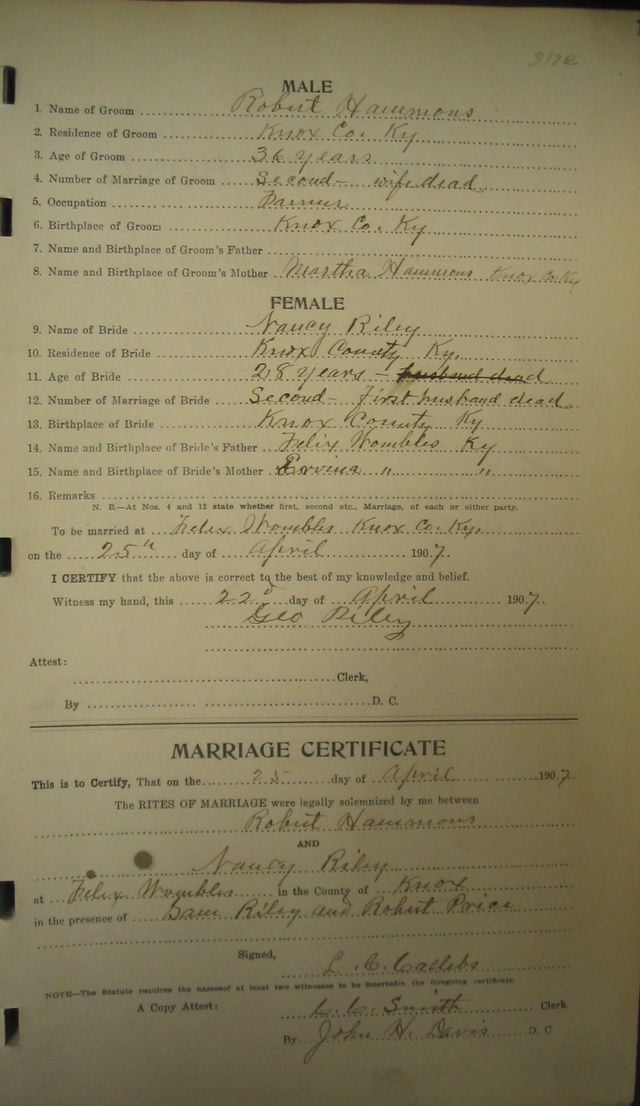 2172
MALE
1. Name of Groom Robert Hammons
2. Residence of Groom Knox Co. Ky
3. Age of Groom 36 years
4. Number of Marriage of Groom Second- wife dead
5. Occupation Farmer
6. Birthplace of Groom Knox Co. Ky
7. Name and Birthplace of Groom's Father
8. Name and Birthplace of Groom's Mother Martha Hammons Knox Co Ky
FEMALE
9. Name of Bride Nancy Riley
10. Residence of Bride Knox County Ky.
11. Age of Bride 28 years - husband dead
12. Number of Marriage of Bride Second- First husband dead
13. Birthplace of Bride Knox County Ky
14. Name and Birthplace of Bride's Father Felix Wombles Ky
15. Name and Birthplace of Bride's Mother " "
16. Remarks
N. B.—At Nos. 4 and 12 state whether first, second etc., Marriage, of each or either party.
To be married at Felix Wombles Knox Co. Ky.
on the 25th day of April 1907.
I CERTIFY that the above is correct to the best of my knowledge and belief.
Witness my hand, this 22d day of April 1907
Geo Riley
Attest:
Clerk,
By D. C.
MARRIAGE CERTIFICATE
This is to Certify, That on the 25 day of April 1907
The RITES OF MARRIAGE were legally solemnized by me between
Robert Hammons
AND
Nancy Riley
at Felix Wombles in the County of Knox
in the presence of Sam Riley and Robert Price
Signed,
L. C.
NOTE—The Statute requires the names of at least two witnesses to be inserted in the foregoing certificate.
A Copy Attest: Smith Clerk.
By John H. Davis D. C.